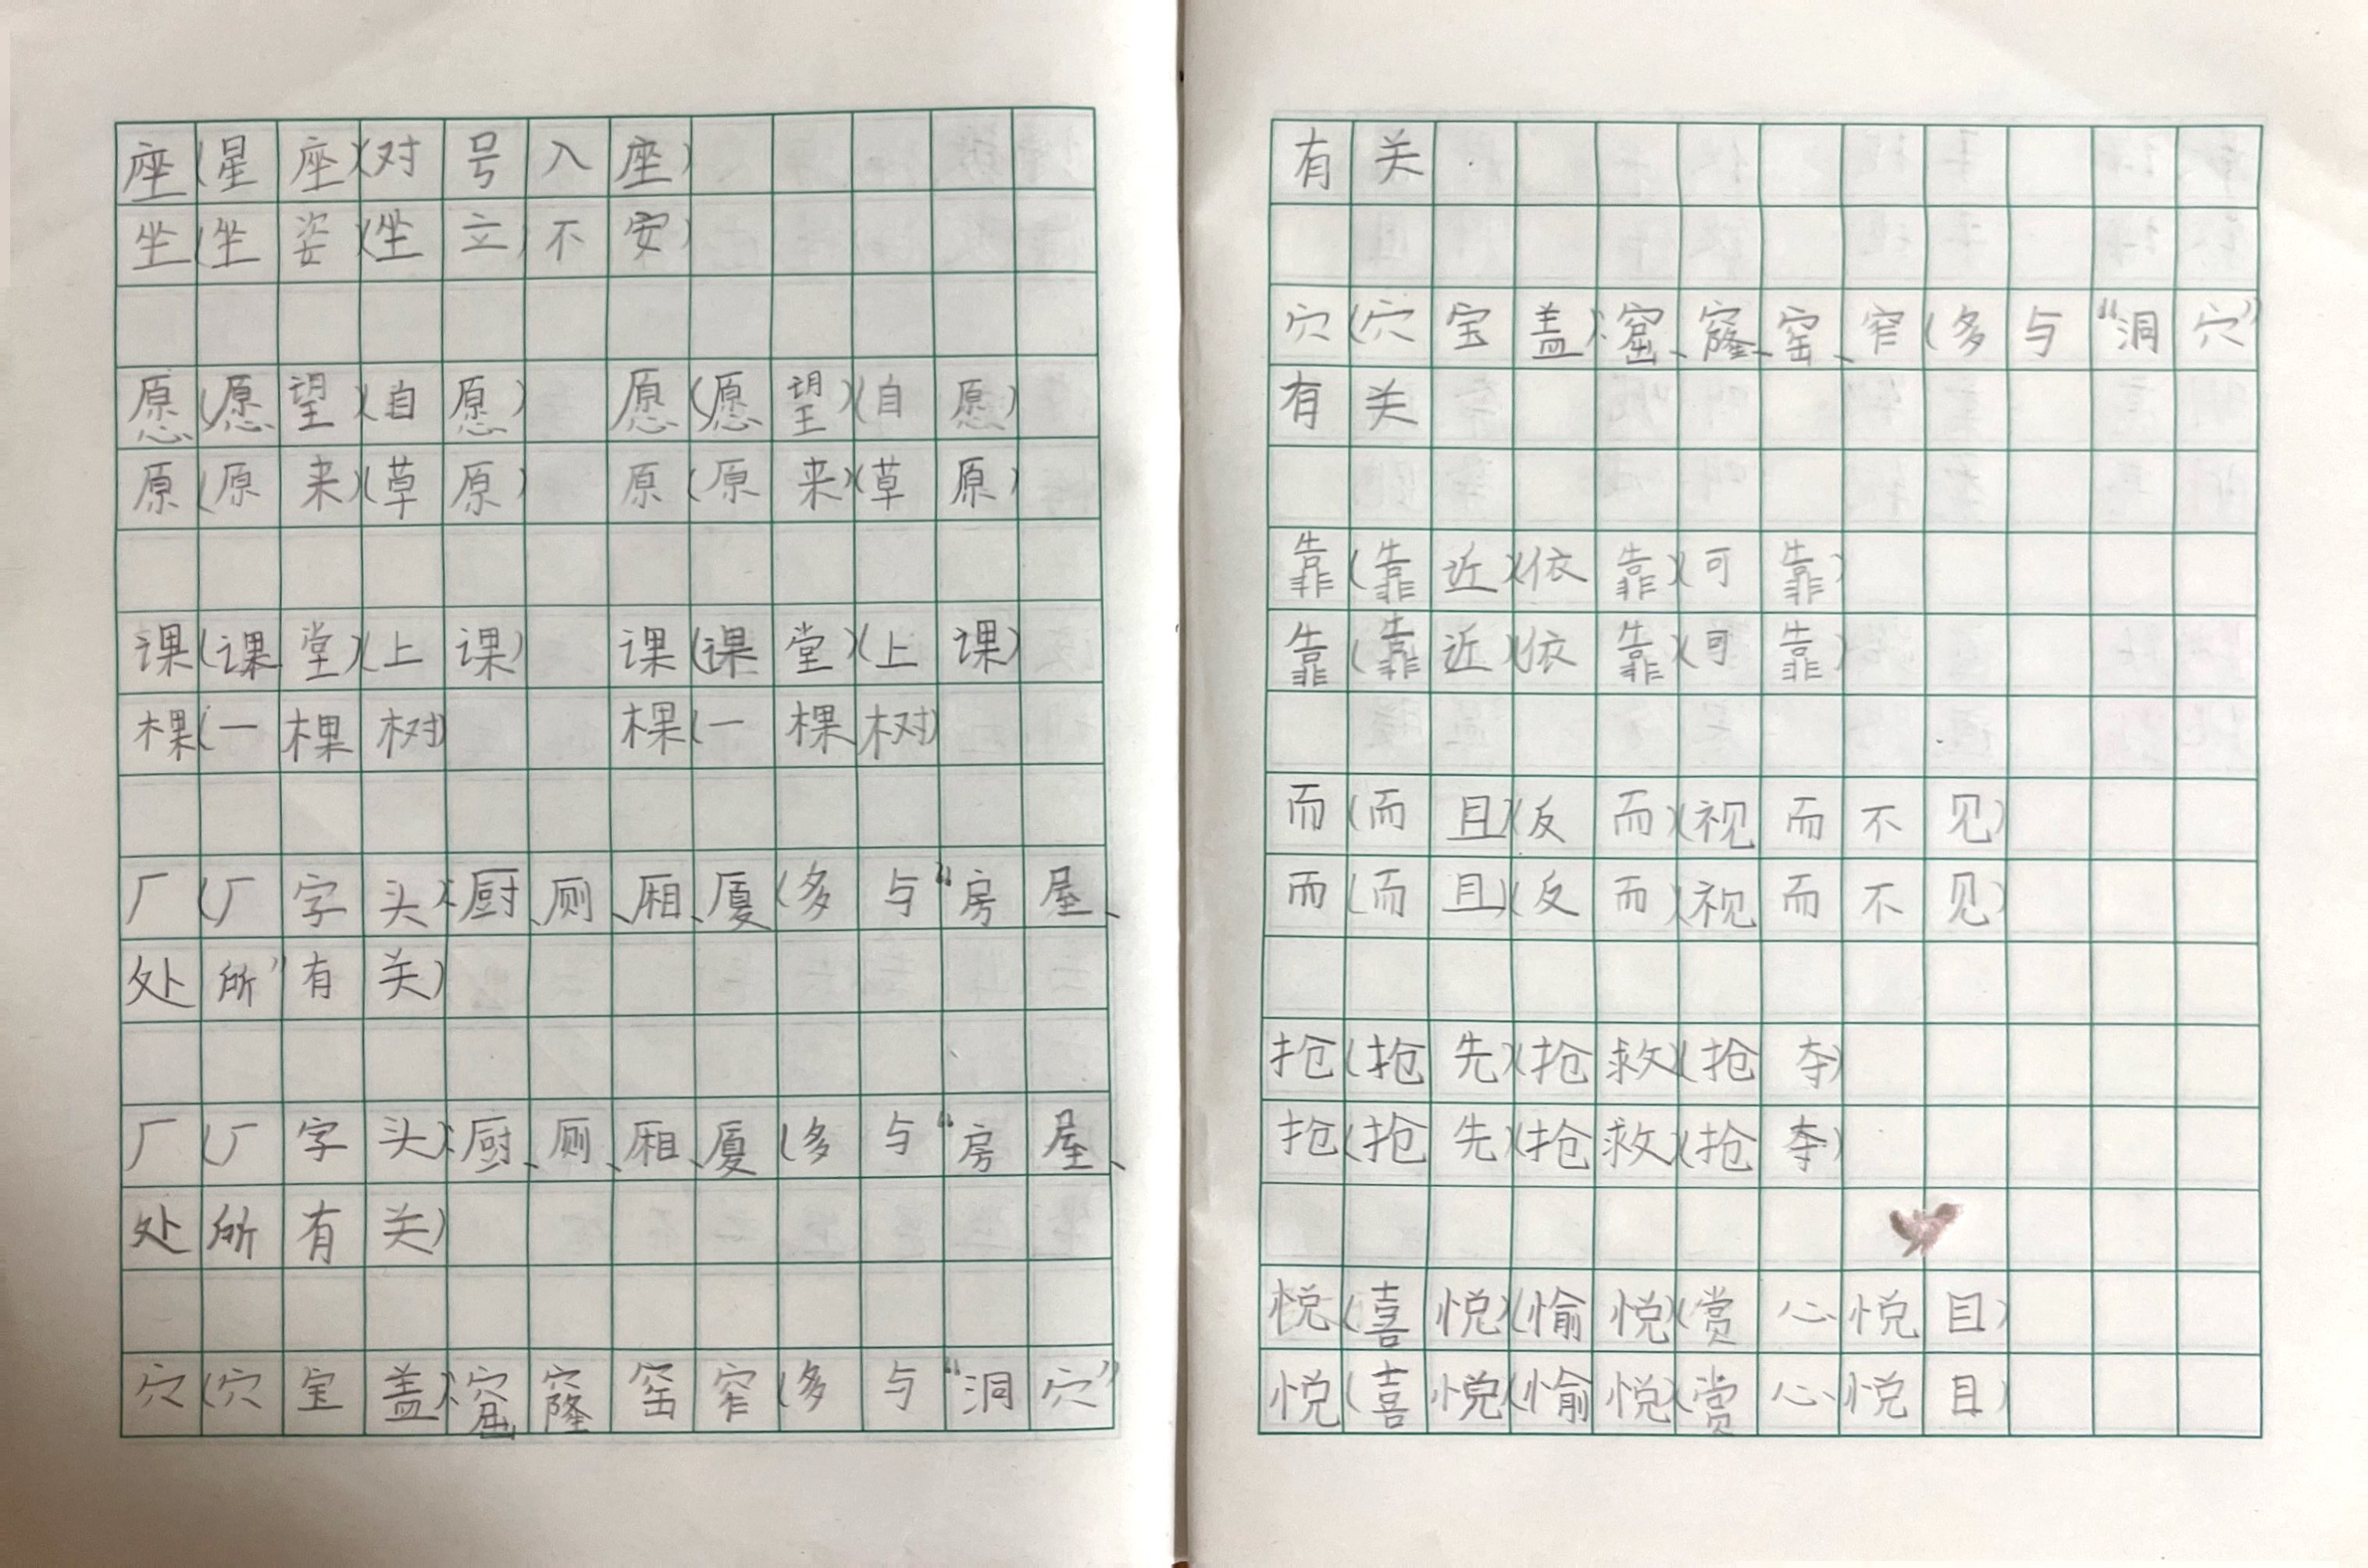 座(星座)(对号入座)
坐(坐姿)(坐立不安)
愿(愿望)(自愿) 愿(愿望)(自愿)
原(原来)(草原) 原(原来)(草原)
课(课堂)(上课) 课(课堂)(上课)
棵(一棵树) 棵(一棵树)
厂(厂字头):厨、厕、厢、厦(多与“房屋、
处所”有关)
厂(厂字头):厨、厕、厢、厦(多与“房屋、
处所有关)
穴(穴宝盖):窟窿窑窄(多与“洞穴”
有关
穴(穴宝盖):窟、窿、窑、窄(多与“洞穴”
有关
靠(靠近)(依靠)(可靠)
靠(靠近)(依靠)(可靠)
而(而且)(反而)(视而不见)
而(而且)(反而)(视而不见)
抢(抢先)(抢救)(抢夺)
抢(抢先)(抢救)(抢夺)
悦(喜悦)(愉悦)(赏心悦目)
悦(喜悦)(愉悦)(赏心悦目)